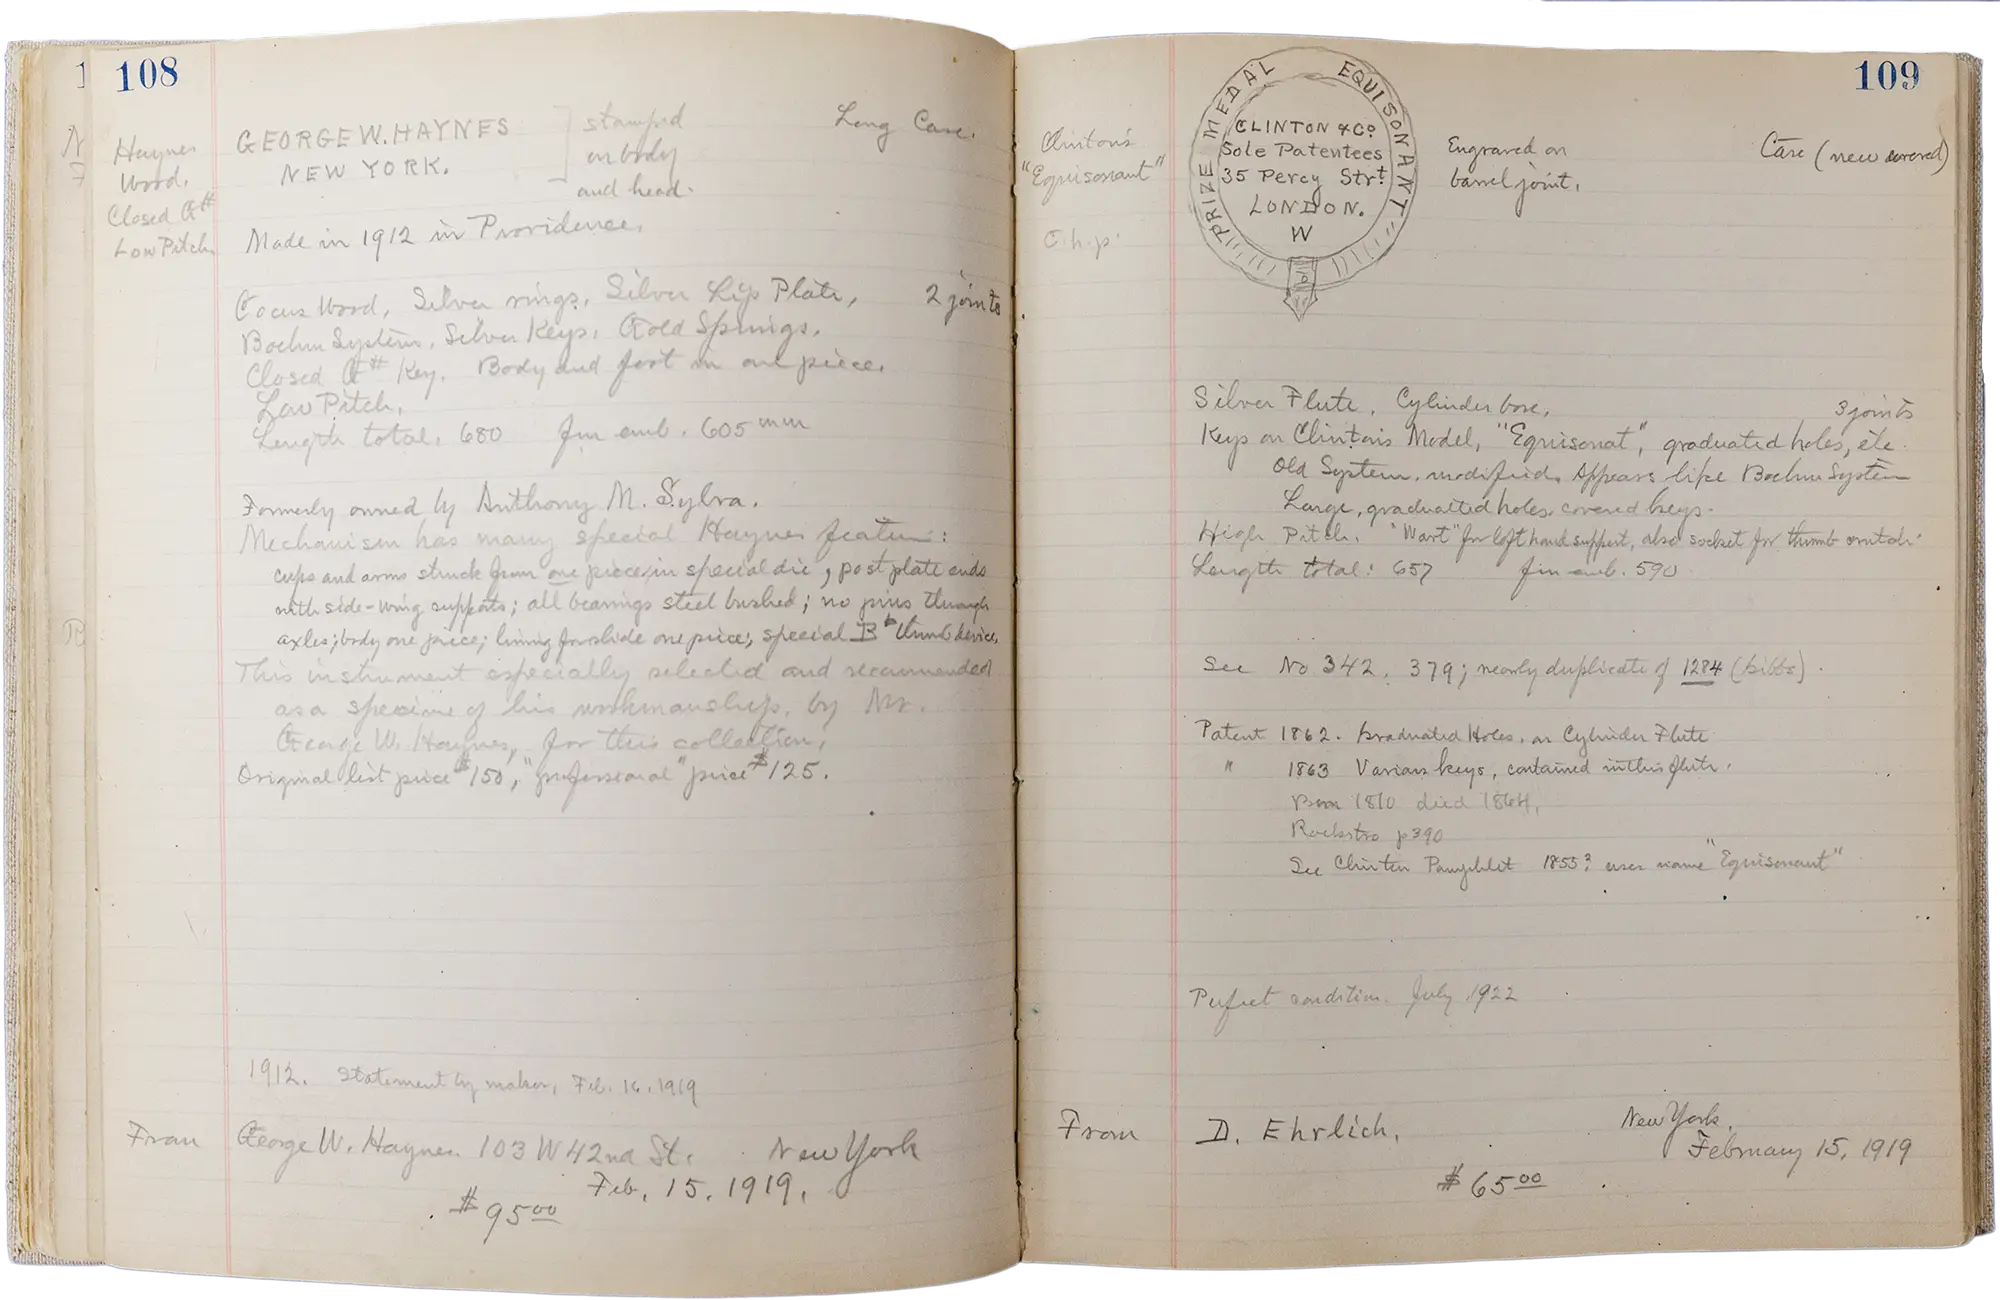 108
Haynes
Wood.
Closed G#
Low Pitch.
GEORGE W. HAYNES
NEW YORK.
stamped
on body
and head.
Long Case.
Made in 1912 in Providence.
Cocus Wood, Silver rings, Silver Lip Plate, 2 joints
Boehm System, Silver Keys, Gold Springs.
Closed G# Key. Body and foot in one piece.
Low Pitch.
Length total. 680 fm emb. 605 mm
Formerly owned by Anthony M. Sylva.
Mechanism has many special Haynes features:
cups and arms struck from one piece, in special die, post plate ends
with side-wing supports; all bearings steel bushed; no pins through
axles; body one piece; lining for slide one piece; special Bb thumb device.
This instrument especially selected and recommended
as a specimen of his workmanship, by Mr.
George W. Haynes, for this collection.
Original list price $150, "professional" price $125.
1912. Statement by maker, Feb. 16, 1919
From George W. Haynes. 103 W 42nd St. New York
Feb. 15, 1919.
$95.00
109
Clinton's
"Equisonant"
C. h.p.
PRIZE MEDAL EQUISONANT
CLINTON & Co
Sole Patentees
35 Percy Strt
LONDON.
W
Engraved on
barrel joint.
Case (new covered)
Silver Flute, Cylinder bore. 3 joints
Keys on Clinton's Model, "Equisonat", graduated holes, etc.
Old System, modified. Appears like Boehm System
Large, graduated holes, covered keys.
High Pitch. "Wart" for left hand support, also socket for thumb crutch.
Length total: 657 fm emb. 590
See No 342, 379; nearly duplicate of 1284 (bibbs).
Patent 1862. Graduated Holes, on Cylinder Flute
" 1863 Various keys, contained in this flute.
Born 1810 died 1864.
Rockstro p390
See Clinton Pamphlet 1855? uses name "Equisonant"
Perfect condition. July 1922
From D. Ehrlich. New York.
February 15, 1919
$65.00